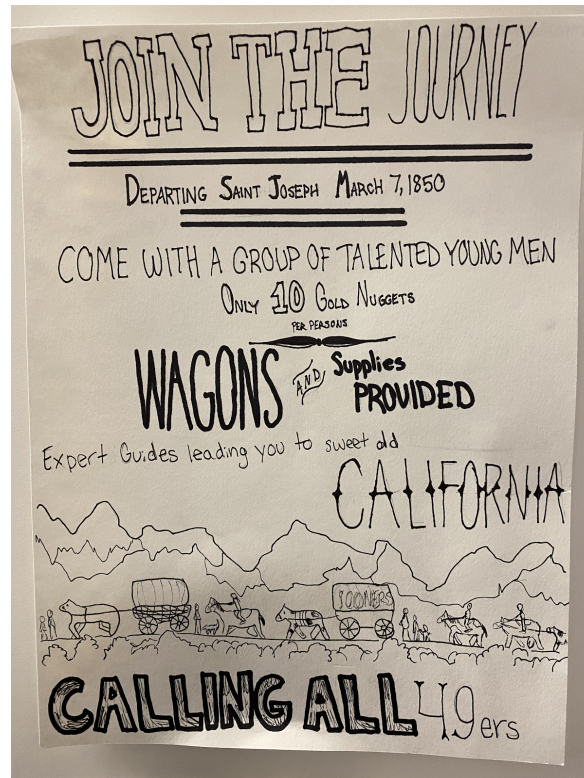 JOIN THE JOURNEY
DEPARTING SAINT JOSEPH MARCH 7, 1850
COME WITH A GROUP OF TALENTED YOUNG MEN
ONLY 10 GOLD NUGGETS
PER PERSONS
WAGONS AND Supplies PROVIDED
Expert Guides leading you to sweet old
CALIFORNIA
SOONERS
CALLING ALL 49ers